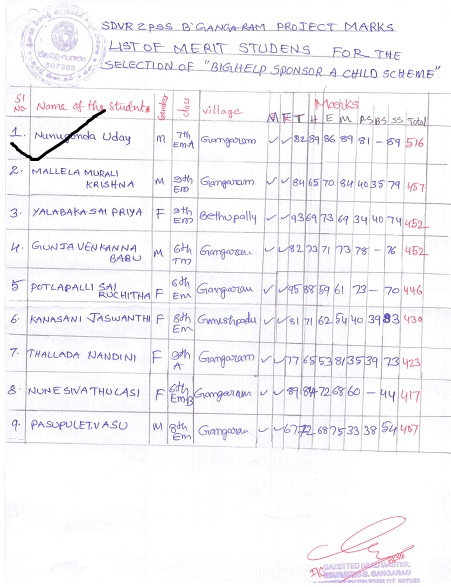 SDVR ZPSS B'GANGARAM PROJECT MARKS
LIST OF MERIT STUDENS FOR THE
SELECTION OF "BIGHELP SPONSOR A CHILD SCHEME"
507303
Sl No Name of the Students Gender class village Marks
M F T H E M PS BS SS Total
1. Nunugonda Uday M 7th EMA Gangaram ✓ ✓ 82 89 86 89 81 - 89 516
2. MALLELA MURALI KRISHNA M 9th EM Gangaram ✓ ✓ 84 65 70 84 40 35 79 457
3. YALABAKA SAI PRIYA F 9th EM Bethupally ✓ ✓ 93 69 73 69 34 40 74 452
4. GUNJA VENKANNA BABU M 6th TM Gangaram ✓ ✓ 82 73 71 73 78 - 76 452
5 POTLAPALLI SAI RUCHITHA F 6th EM Gangaram ✓ ✓ 95 88 59 61 73 - 70 446
6. KANASANI JASWANTHI F 8th EM Ganeshpadu ✓ ✓ 81 71 62 54 40 39 83 430
7. THALLADA NANDINI F 9th A Gangaram ✓ ✓ 77 65 53 81 35 39 73 423
8. NUNE SIVA THULASI F 6th EMB Gangaram ✓ ✓ 89 84 72 68 60 - 44 417
9. PASUPULETI VASU M 8th EM Gangaram ✓ ✓ 67 72 68 75 33 38 54 407
GAZETTED HEAD MASTER,
B. GANGARAM